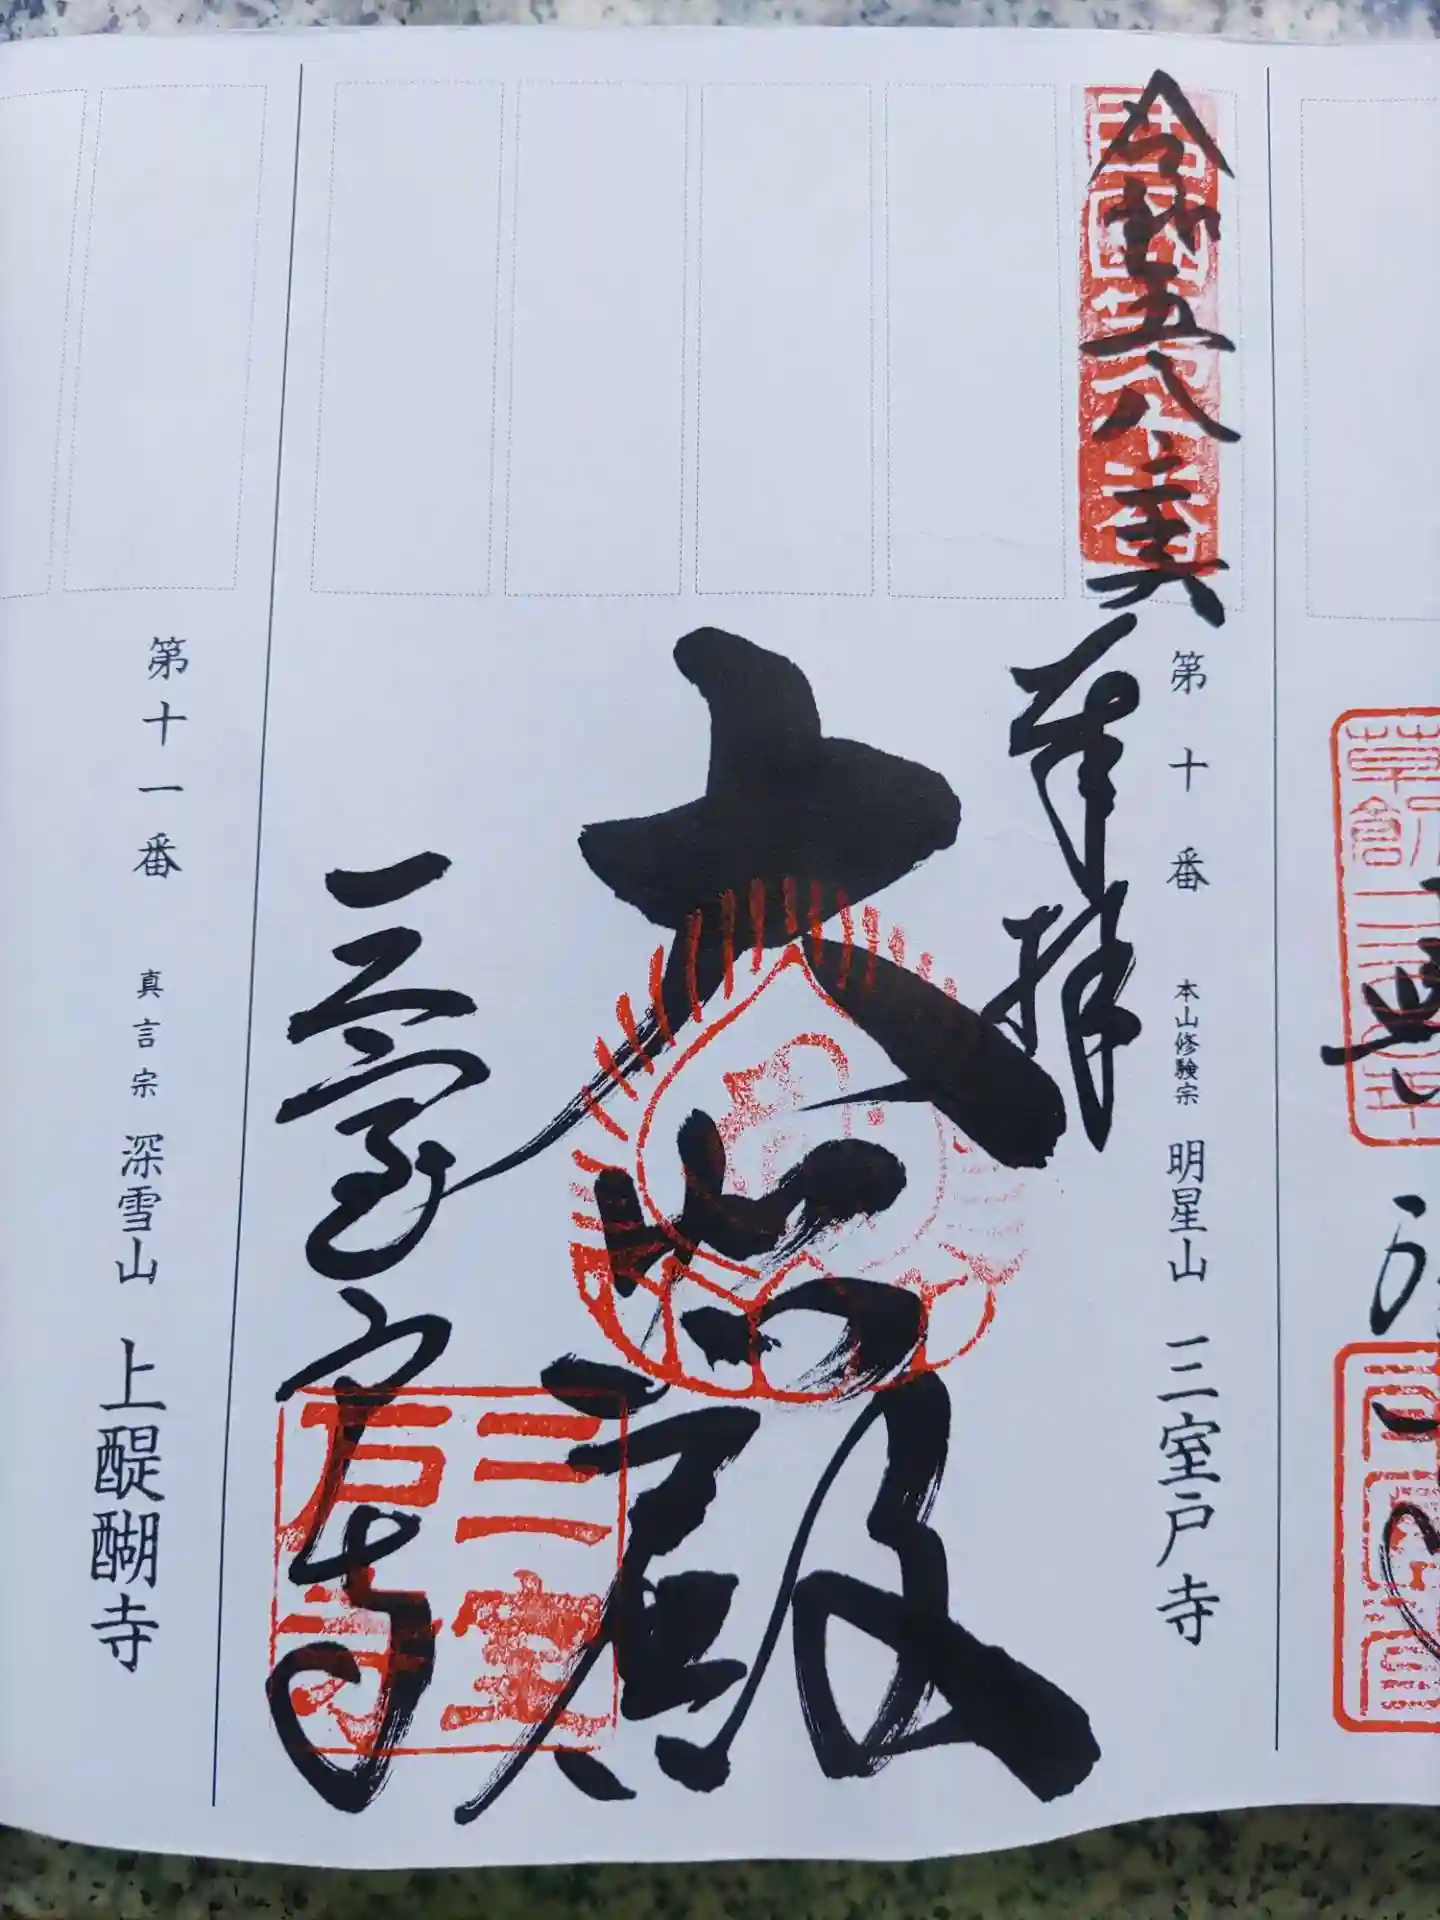 草創
西国第十番
令和五 八
第十番 本山修験宗 明星山 三室戸寺
奉拝
大悲殿
三室戸寺
三室
戸寺
第十一番 真言宗 深雪山 上醍醐寺